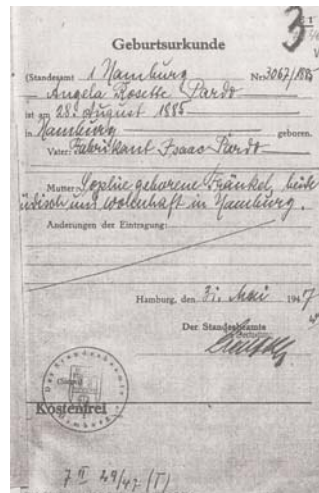 3
Geburtsurkunde
(Standesamt 1 Hamburg Nr. 3067/1885
Angela Rosette Pardo
ist am 28. August 1885
in Hamburg geboren.
Vater: Fabrikant Isaac Pardo
Mutter: Sophie geborene Fränkel, beide
jüdisch und wohnhaft in Hamburg.
Änderungen der Eintragung:
Hamburg, den 31. Mai 1947
Der Standesbeamte
(Siegel)
Kostenfrei